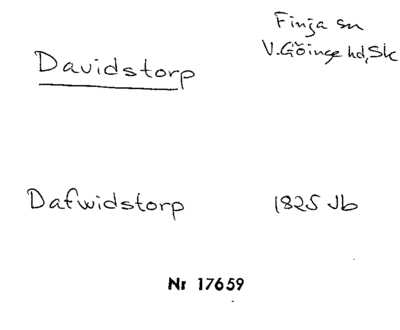 Finja sn
V.Göinge hd, Sk
Davidstorp
Dafwidstorp 1825 Jb
Nr 17659